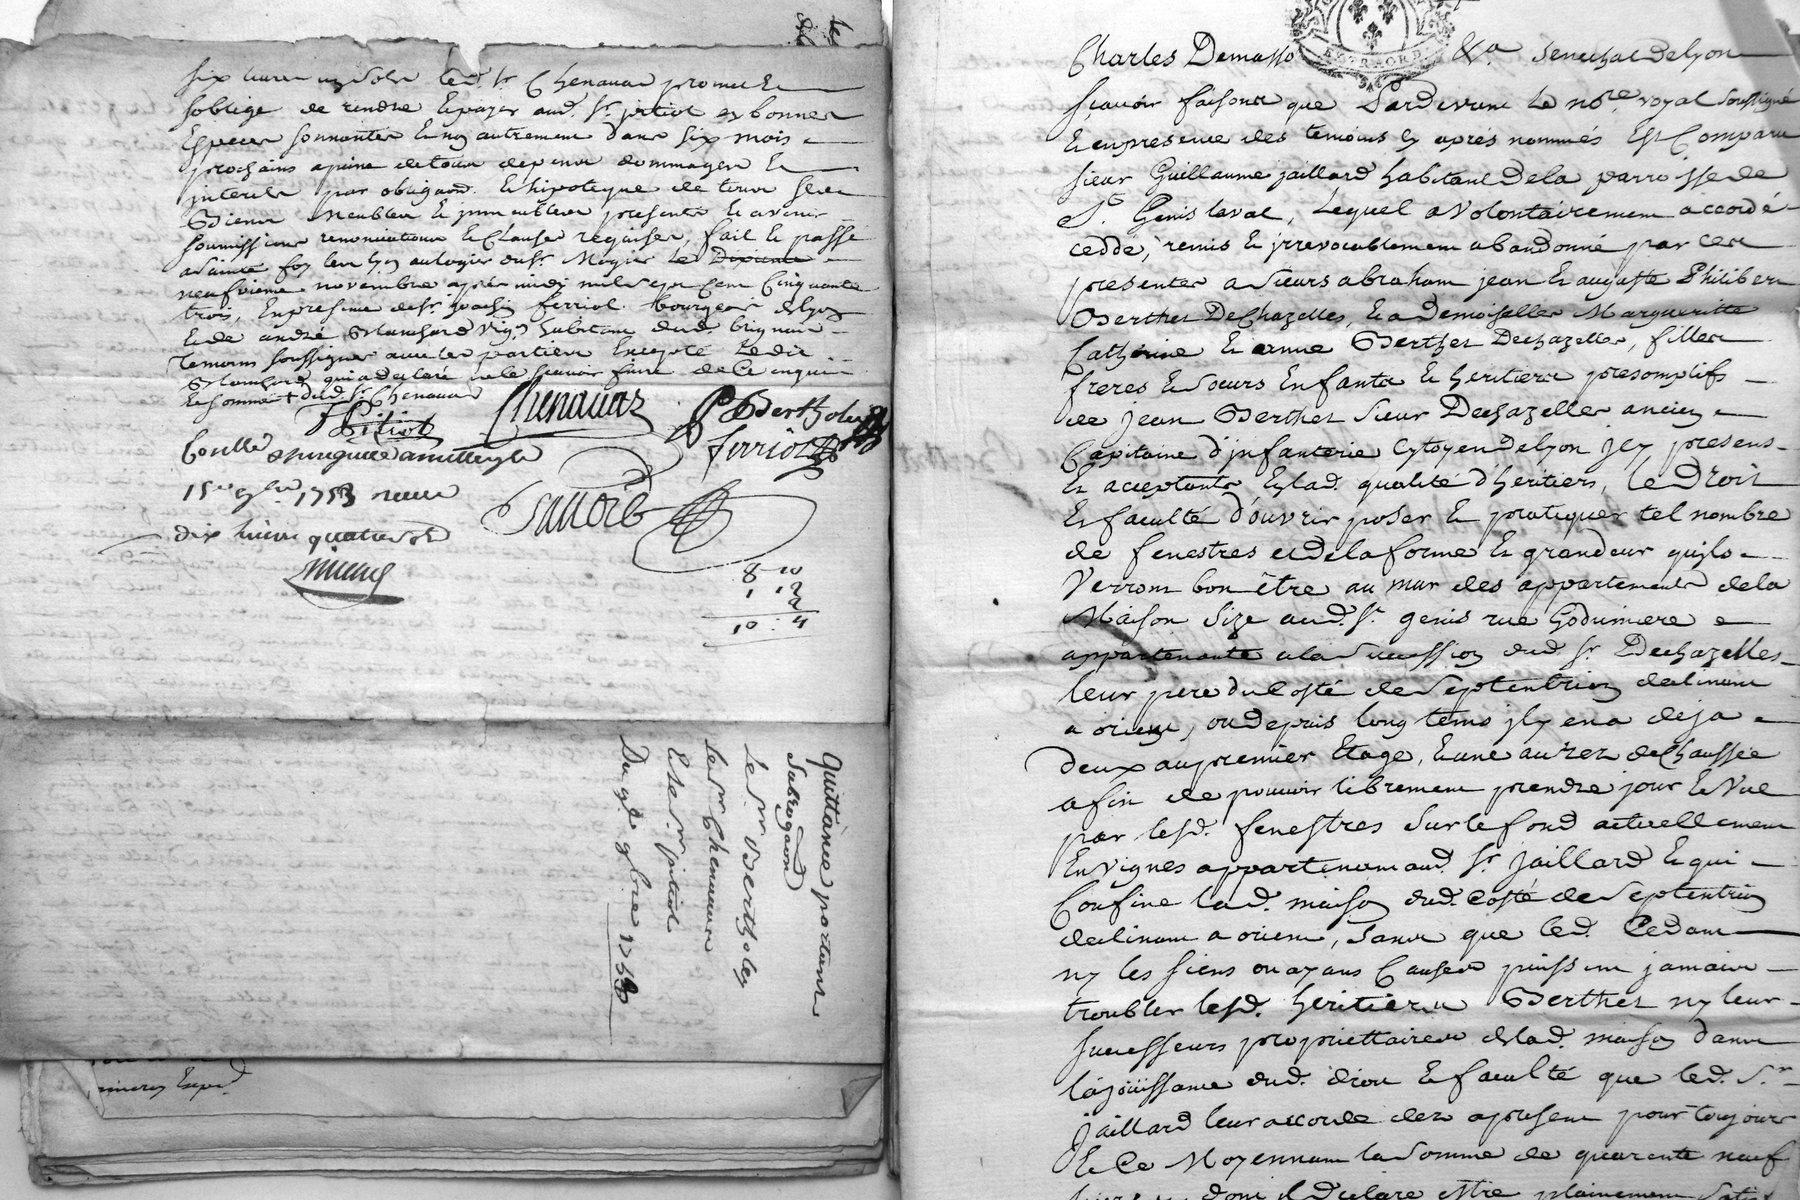 six livres un sols led. sr. Chenavaz promet et
soblige de rendre et payer aud. sr. pitiot en bonnes
Especes sonnantes et non autrement dans six mois
prochains a peine de tous depens dommages et
interets par obligaon. et hipoteque de tous ses
Biens meubles et immeubles presents et avenir
soumissions renonciations et clauses requises, fait et passé
a sainte foy les lyon au logis du sr. Mogier le
neufvieme novembre apres midy mil sept cent cinquante
trois, En presence de sr. ferriol Bourgeois delyon
et de andré Blanchard vign. habitant dud. brignais
temoins soussignes avec les parties Excepté ledit
Blanchard qui a declaré ne le scavoir faire de ce enquis
et sommé
Chenavaz P Bertholey
Pitiot
ferriol
15e 9bre 1753 receu
dix livres quatre sols
8 10
1 12
10 : 4
Quittance portant
Subrogaon
le sr. Bertholey
le sr. Chenavaz
Et le sr. pitiot
Du 9e 9bre 1753
Charles Demasso &a. Senechal delyon
sçavoir faisons que Pardevant le nore. royal soussigné
Et en presence des temoins cy après nommés Est Comparu
sieur Guillaume jaillard habitant de la parroisse de
St. Genis laval, Lequel a volontairement accordé
ceddé, remis et irrevocablement abandonné par ces
presentes a sieurs abraham jean et auguste Philibert
Berthet DeChazelles, et a demoiselles Margueritte
Catherine et anne Berthet Dechazelles, filles
freres et soeurs Enfants et heritiers presomptifs
de Jean Berthet Sieur Dechazelles ancien
Capitaine d'infanterie Cytoyen Delyon icy presens
Et acceptants Eslad. qualité d'heritiers, le Droit
et faculté d'ouvrir poser et pratiquer tel nombre
de fenestres et de la forme et grandeur quils
Verront bon être au mur des appartements de la
Maison Size aud. St. genis rue Godiniere
appartenante a la Succession dud. sr. Dechazelles
leur pere du costé de Septentrion declinant
a orient, ou depuis long tems il y en a deja
deux au premier Etage, et une au rez de Chaussée
afin de pouvoir librement prendre jour et Vue
par lesd. fenestres sur le fond actuellement
En vignes appartenant aud. sr. jaillard et qui
Confine lad. maison dud. costé de Septentrion
declinant a orient, sans que led. Cedant
ny les siens ou ayans Causes puissent jamais
troubler lesd. heritiers Berthet ny leur
successeurs proprietaires deslad. maison dans
la joüissance dud. droit et faculté que led. sr.
jaillard leur accorde dez apresent pour toujours
Et Ce Moyennant la somme de quarente neuf
livres dont il declare être plainement